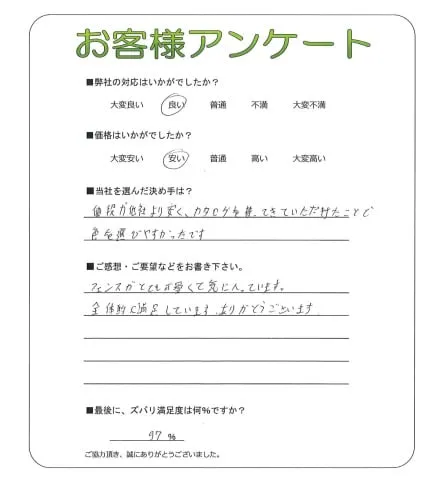 お客様アンケート
■弊社の対応はいかがでしたか？
大変良い 良い 普通 不満 大変不満
■価格はいかがでしたか？
大変安い 安い 普通 高い 大変高い
■当社を選んだ決め手は？
値段が他社より安く、カタログを持ってきていただけたことで
色を選びやすかったです
■ご感想・ご要望などをお書き下さい。
フェンスがとても良くて気に入っています。
全体的に満足しています。ありがとうございます
■最後に、ズバリ満足度は何％ですか？
97 %
ご協力頂き、誠にありがとうございました。